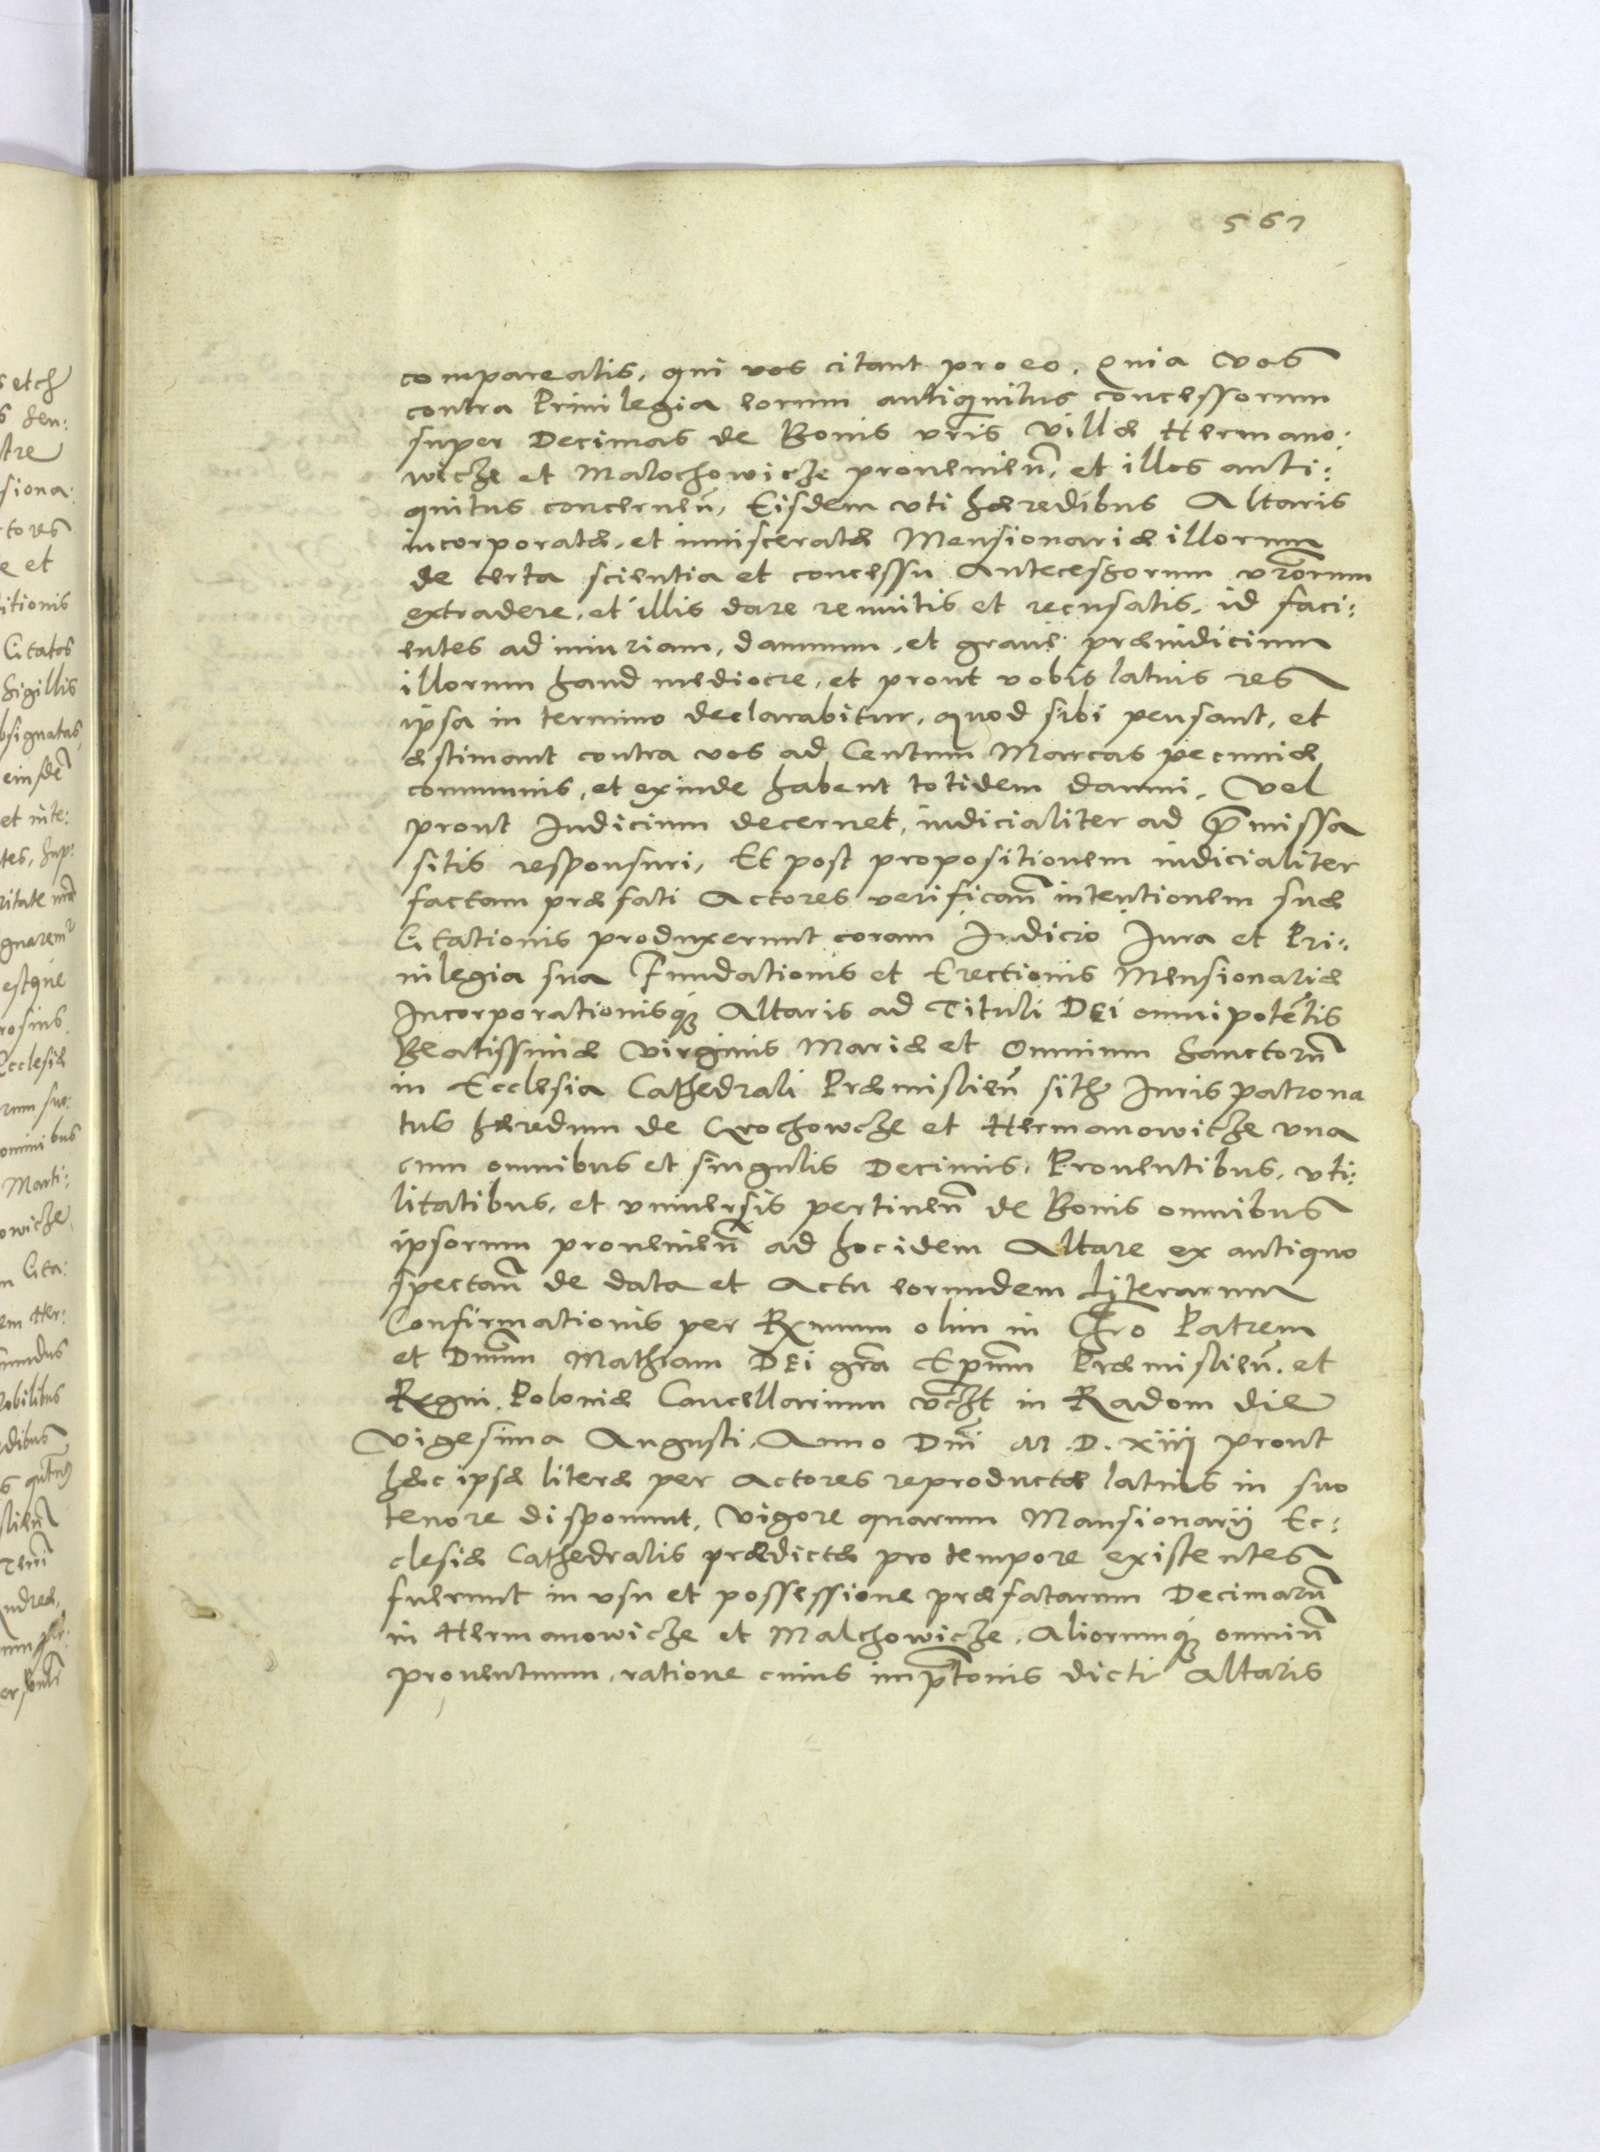 567
compareatis, qui vos citant pro eo, Quia Vos
contra Priuilegia eorum antiquitus concessorum
super Decimas de Bonis vris Villæ Hermano:
wicze et Malochowicze prouenien, et illos anti:
quitus concernen, Eisdem vti hæredibus Altaris
incorporatæ, et inuisceratæ Mensionariæ illorum
de certa scientia et concessu Antecessorum vrorum
extradere, et illis dare renuitis et recusatis, id faci:
entes ad iniuriam, damnum, et graue præiudicium
illorum haud mediocre, et prout vobis latius res
ipsa in termino declarabitur, quod sibi pensant, et
æstimant contra vos ad Centum Marcas pecuniæ
communis, et exinde habent totidem damni, Vel
prout Iudicium decernet, iudicialiter ad pmissa
sitis responsuri, Et post propositionem iudicialiter
factam præfati Actores verifican intentionem suæ
Citationis produxerunt coram Iudicio Iura et Pri:
uilegia sua Fundationis et Erectionis Mensionariæ
Incorporationisq; Altaris ad Tituli DEi omnipotētis
Beatissimæ Virginis Mariæ et Omnium Sanctorū
in Ecclesia Cathedrali Præmislien sith Iuris patrona
tus hæredum de Crochowcze et Hermanowicze vna
cum omnibus et singulis Decimis, Prouentibus, vti:
litatibus, et vniuersis pertinen de Bonis omnibus
ipsorum prouenien ad hocidem Altare ex antiquo
spectan de data et Actu eorumdem Literarum
Confirmationis per Rxmum olim in Chro Patrem
et Dnum Mathiam DEi gra Epnum Præmislien. et
Regni Poloniæ Cancellarium vcht in Radom die
Vigesima Augusti, Anno Dni M.D.xiiij prout
hæc ipsæ literæ per Actores reproductæ latius in suo
tenore disponunt, Vigore quarum Mansionarij Ec:
clesiæ Cathedralis prædictæ pro tempore existentes
fuerunt in vsu et possessione præfatarum Decimarū
in Hermanowicze et Malchowicze, Aliorumq; omniū
prouentuum, ratione cuius imptonis dicti Altaris